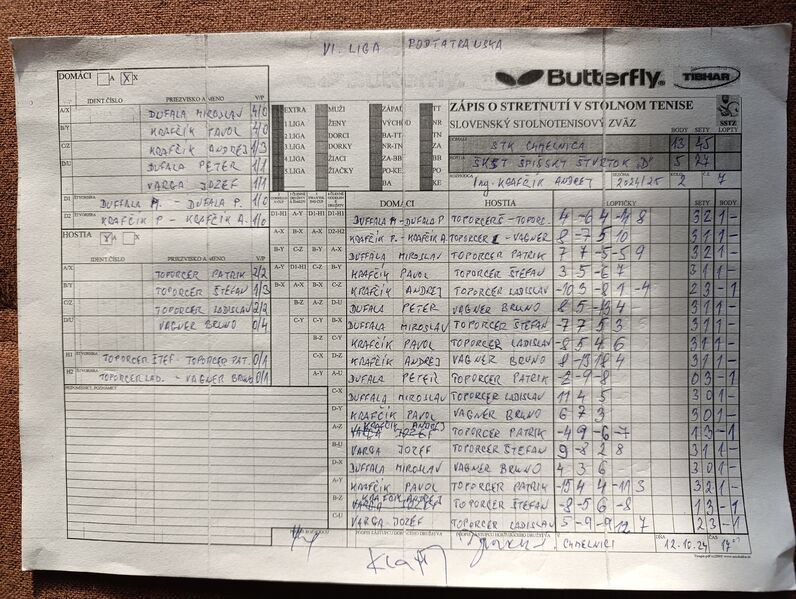 VI. LIGA PODTATRANSKA
DOMÁCI A X X
Butterfly. TIBHAR
IDENT.ČÍSLO PRIEZVISKO A MENO V/P
A/X DUFFALA MIROSLAV 4/0
B/Y KRAFČÍK PAVOL 4/0
C/Z KRAFČÍK ANDREJ 1/3
D/U DUFALA PETER 1/1
VARGA JOZEF 1/1
D1 ŠTVORHRA DUFFALA M. - DUFALA P. 1/0
D2 ŠTVORHRA KRAFČÍK P - KRAFČÍK A. 1/0
EXTRA MUŽI ZÁPAD TT
1.LIGA ŽENY VÝCHOD NR
2.LIGA DORCI BA-TT TN
3.LIGA DORKY NR-TN ZA
4.LIGA ŽIACI ZA-BB BB
5.LIGA ŽIAČKY PO-KE PO
BA KE
ZÁPIS O STRETNUTÍ V STOLNOM TENISE
SLOVENSKÝ STOLNOTENISOVÝ ZVÄZ
SSTZ
BODY SETY LOPTY
STK CHMELNICA 13 45
ŠKST SPIŠSKÝ ŠTVRTOK "D" 5 27
ROZHODCA Ing. KRAFČÍK ANDREJ SEZÓNA 2024/25 KOLO 2 Č.Z. 7
HOSTIA Y A
IDENT.ČÍSLO PRIEZVISKO A MENO V/P
A/X TOPORCER PATRIK 2/2
B/Y TOPORCER ŠTEFAN 1/3
C/Z TOPORCER LADISLAV 2/2
D/U VAGNER BRUNO 0/4
H1 ŠTVORHRA TOPORCER ŠTEF - TOPORCER PAT. 0/1
H2 ŠTVORHRA TOPORCER LAD. - VAGNER BRUNO 0/1
DOMÁCI HOSTIA LOPTIČKY SETY BODY
D1-H1 A-Y D1-H1 D1-H1 DUFFALA M - DUFALA P TOPORCERŠ - TOPORC. 4 -6 4 -4 8 3 2 1 -
A-X B-X A-X D2-H2 KRAFČÍK P. - KRAFČÍK A. TOPORCER L - VAGNER 8 -7 5 10 3 1 1 -
B-Y C-Z B-Y A-X DUFFALA MIROSLAV TOPORCER PATRIK 7 7 -5 -5 9 3 2 1 -
A-Y D1-H1 C-Z B-Y KRAFČÍK PAVOL TOPORCER ŠTEFAN 3 -5 6 7 3 1 1 -
B-X A-X B-X C-Z KRAFČÍK ANDREJ TOPORCER LADISLAV -10 3 -8 1 -4 2 3 - 1
B-Z A-Z D-U DUFALA PETER VAGNER BRUNO 8 5 -13 4 3 1 1 -
C-Y C-Y B-X DUFFALA MIROSLAV TOPORCER ŠTEFAN -7 7 5 3 3 1 1 -
B-Z C-Y KRAFČÍK PAVOL TOPORCER LADISLAV -8 5 4 6 3 1 1 -
C-X D-Z KRAFČÍK ANDREJ VAGNER BRUNO 8 -13 18 4 3 1 1 -
A-Y A-U DUFALA PETER TOPORCER PATRIK -2 -9 -8 0 3 - 1
C-X DUFFALA MIROSLAV TOPORCER LADISLAV 11 4 5 3 0 1 -
D-Y KRAFČÍK PAVOL VAGNER BRUNO 6 7 3 3 0 1 -
A-Z KRAFČÍK ANDREJ TOPORCER PATRIK -4 9 -6 -7 1 3 - 1
B-U VARGA JOZEF TOPORCER ŠTEFAN 9 -8 2 8 3 1 1 -
D-X DUFFALA MIROSLAV VAGNER BRUNO 4 3 6 3 0 1 -
A-Y KRAFČÍK PAVOL TOPORCER PATRIK -15 4 4 -11 3 3 2 1 -
B-Z KRAFČÍK ANDREJ TOPORCER ŠTEFAN -8 -5 6 -8 1 3 - 1
C-U VARGA JOZEF TOPORCER LADISLAV 5 -9 -9 12 7 2 3 - 1
PODPIS ZÁSTUPCU DOMÁCEHO DRUŽSTVA PODPIS ZÁSTUPCU HOSŤUJÚCEHO DRUŽSTVA V CHMELNICI DŇA 12.10.24 ČAS 17